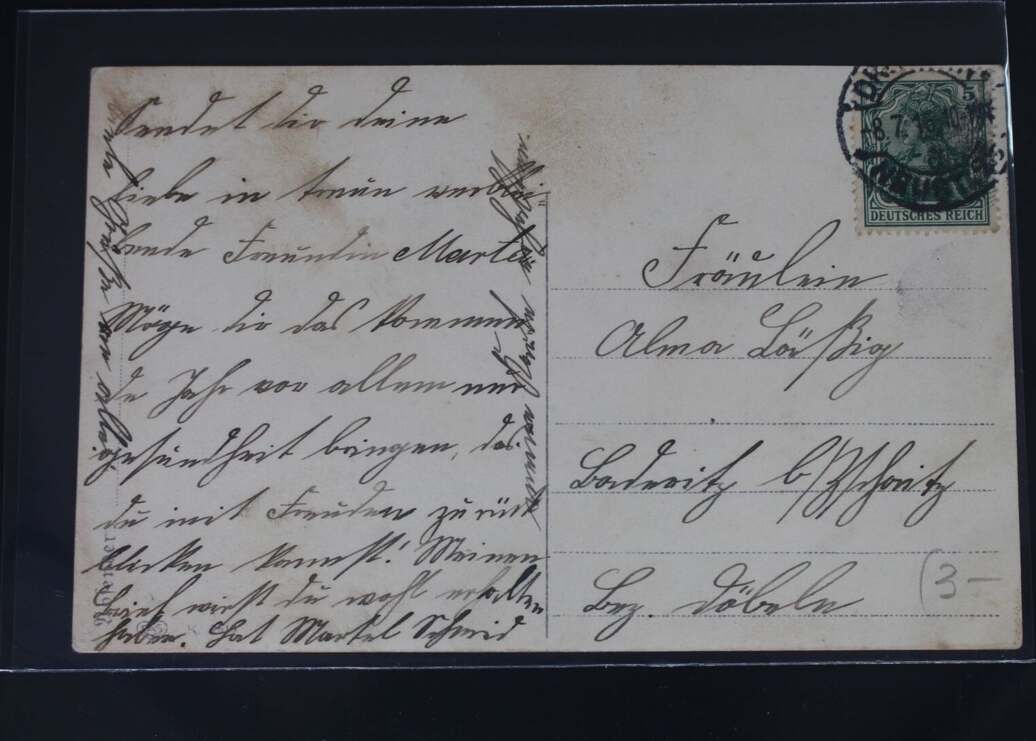 Sendet dir deine
Liebe in treue verblei-
bende Freundin Martel
Möge dir das kommen
de Jahr vor allem nur
gesundheit bringen, das
du mit Freuden zurück
blicken kannst! Meinen
Brief wirst du wohl erhalten
haben. Hat Martel Schmid
noch
viele Grüße an alle
DEUTSCHES REICH
5
8.7.
Fräulein
Alma Läßig
Baderitz b/Zschaitz
Bez. Döbeln
(3-